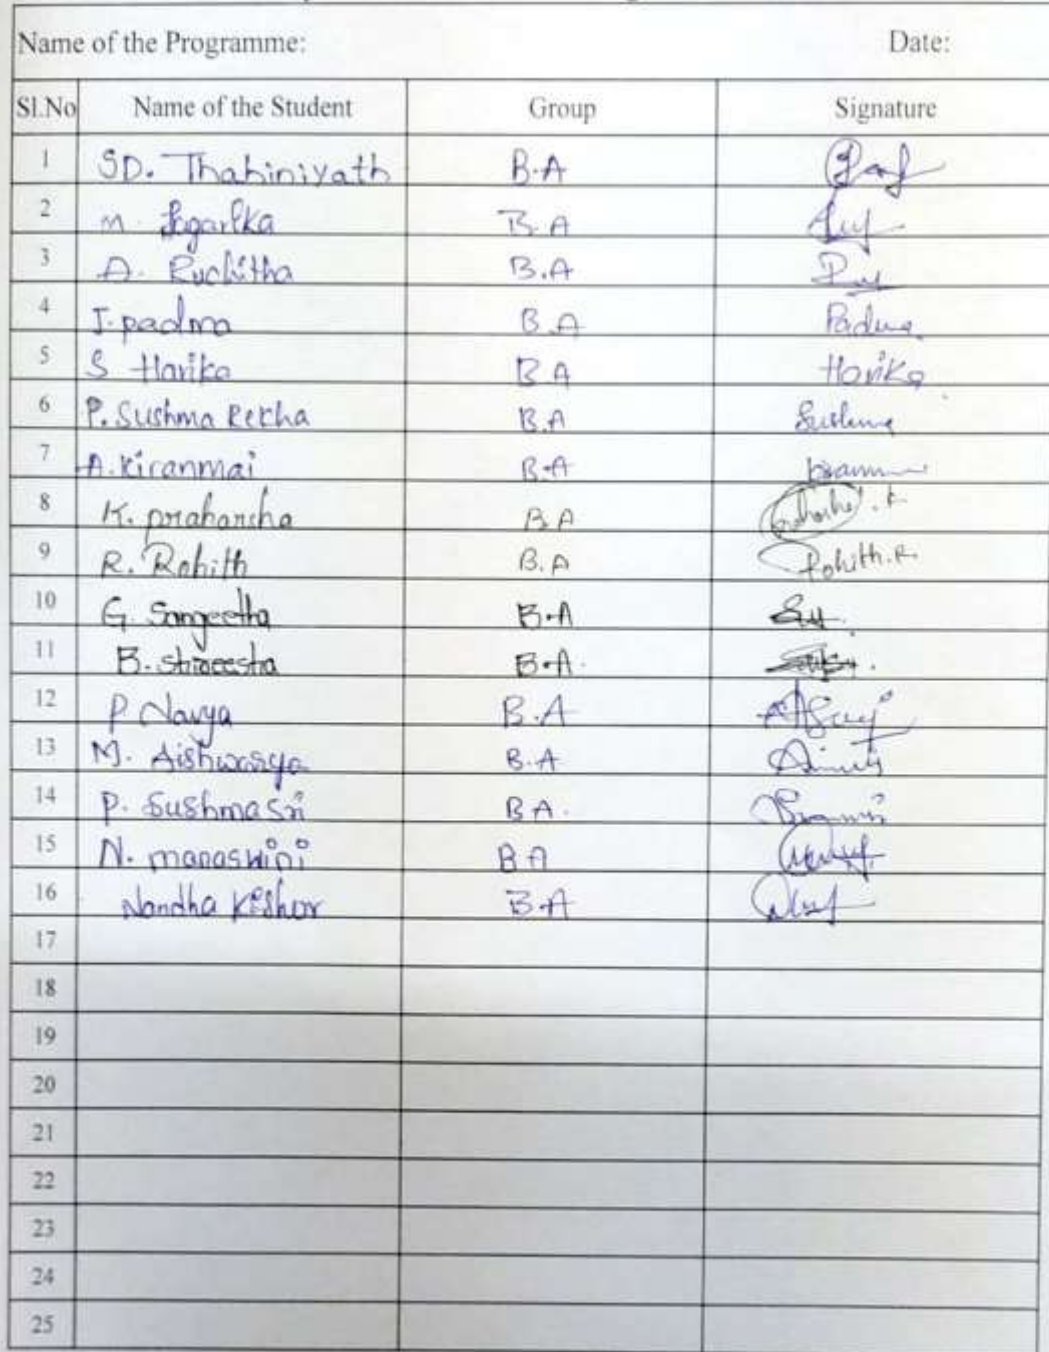 Name of the Programme: Date:
Sl.No Name of the Student Group Signature
1 SD. Thahiniyath B.A
2 M. B.A
3 A. Ruchitha B.A
4 J. padma B.A Padma
5 S Harika B A Harika
6 P. Sushma Rekha B.A Sushma
7 A. Kiranmai B.A
8 K. praharsha B.A
9 R. Rohith B.A Rohith.R
10 G. Sangeetha B.A
11 B. Shireesha B.A.
12 P Navya B.A
13 M. Aishwarya B.A
14 P. SushmaSri BA.
15 N. manaswini BA
16 Nandha Kishor B.A
17
18
19
20
21
22
23
24
25